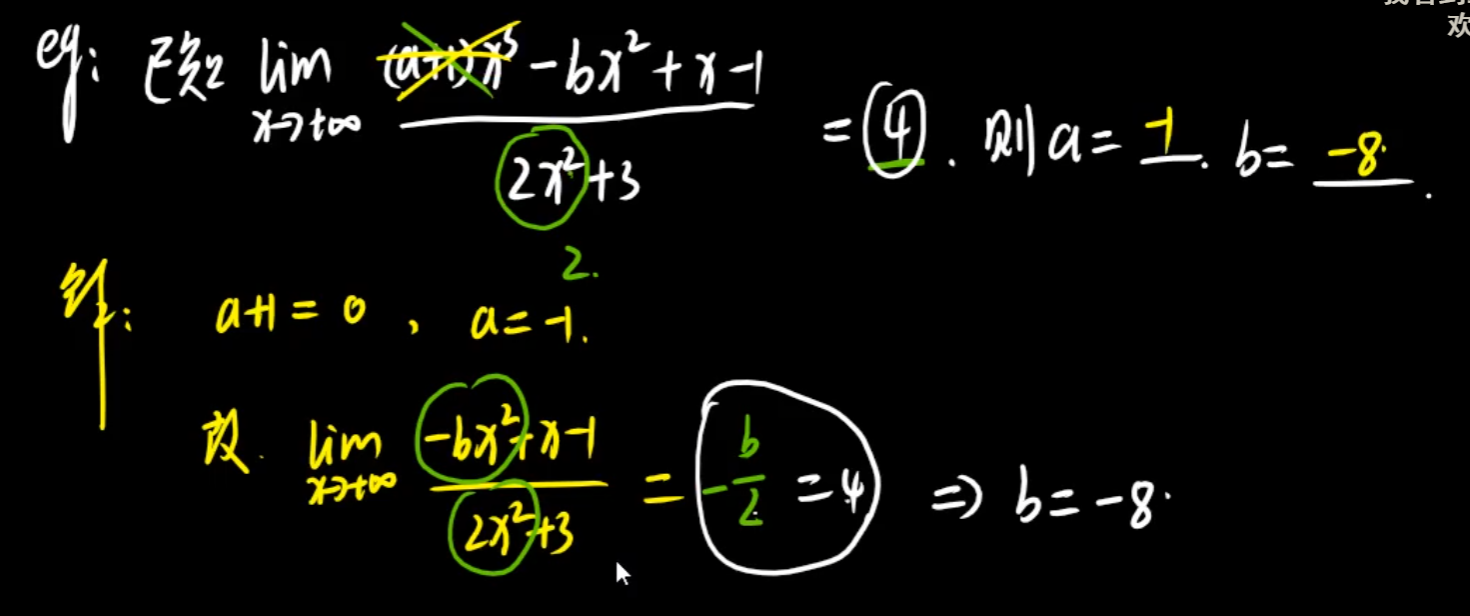 欢
eg: 已知 lim x→+∞ ((a+1)x³ - bx² + x - 1) / (2x² + 3) = 4. 则 a = -1. b = -8.
2.
解: a+1 = 0, a = -1.
故. lim x→+∞ (-bx² + x - 1) / (2x² + 3) = -b/2 = 4 ⇒ b = -8.